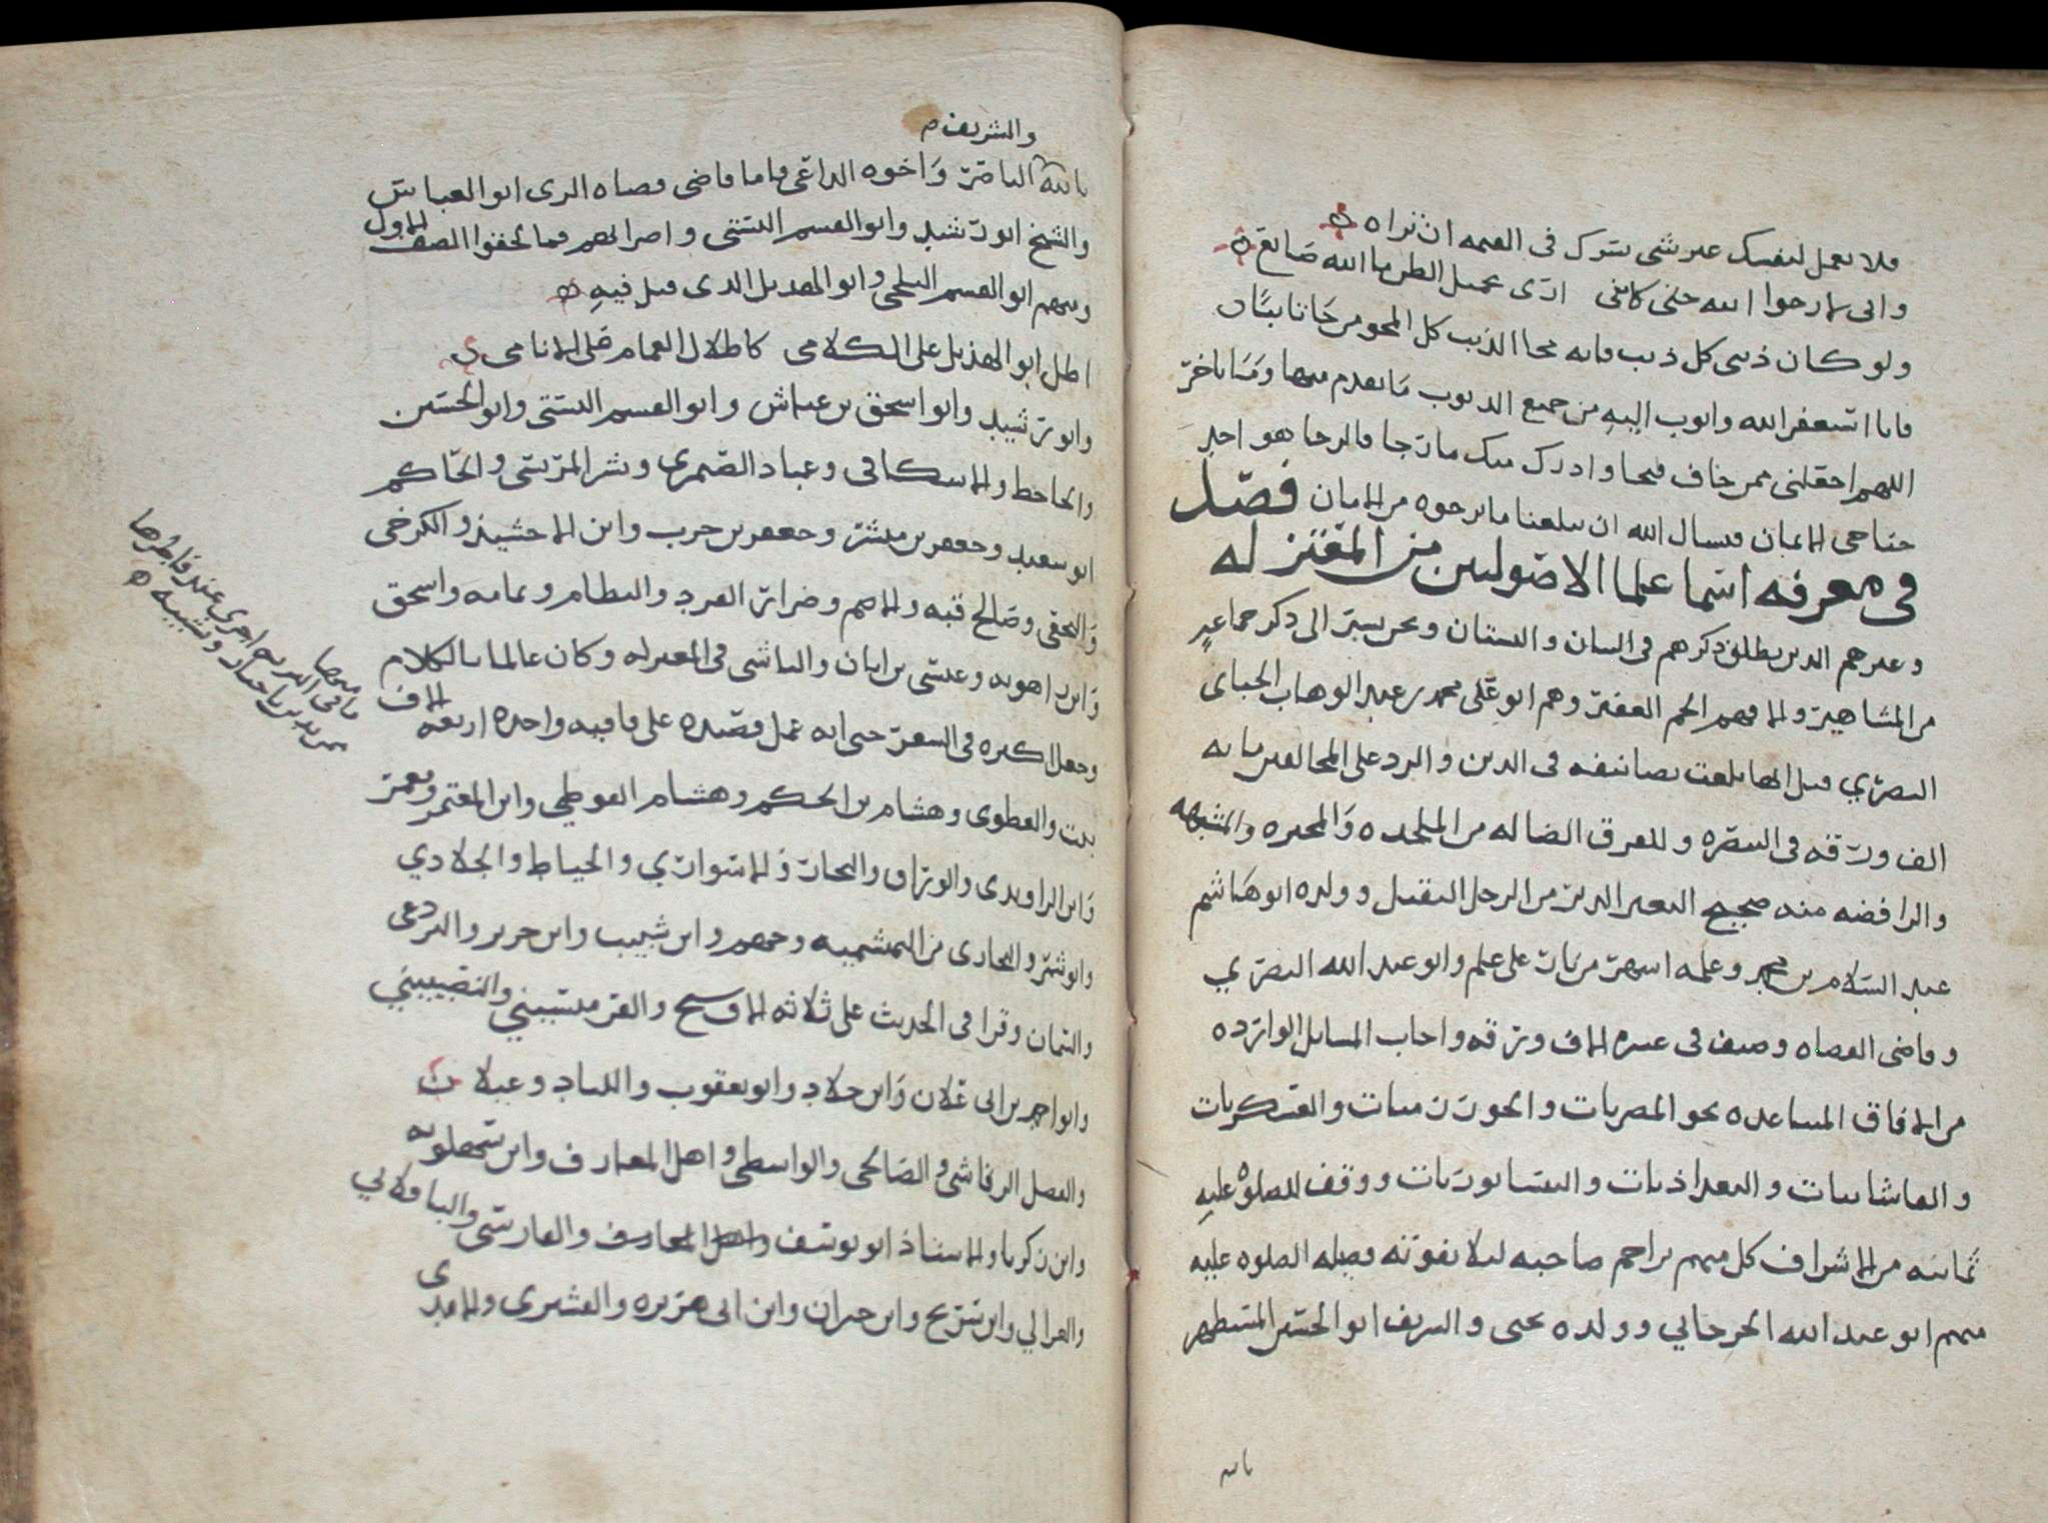 فلا تعمل لنفسك غير شي يسرك في القيمه ان تراه
واني لارجوا الله حتى كانني ارى بجميل الظن ما الله صانع
ولو كان ذنبي كل ذنب فانه محا الذنب كل المحو من جا تايبا
فانا استغفر الله واتوب اليه من جميع الذنوب ما تقدم منها وما تاخر
اللهم اجعلني ممن خاف فنجا وادرك منك ما رجا فالرجا هو احد
جناحي الايمان فنسال الله ان يبلغنا ما نرجوه من الامان فصل
في معرفه اسما علما الاصوليين من المعتزله
وغيرهم الذين يطلق ذكرهم في اللسان والبستان ونحن نشير الى ذكر جماعه
من المشاهير والا فهم الجم الغفير وهم ابو علي محمد بن عبد الوهاب الجباي
البصري قيل انها بلغت تصانيفه في الدين والرد على المخالفين مايه
الف ورقه في البصره وللفرق الضاله من الملحده والمجبره والمشبهه
والرافضه منه ضجيج البعير الدبر من الرحل الثقيل وولده ابو هاشم
عبد السلام بن محمد وعلمه اشهر من نار على علم وابو عبد الله البصري
وقاضي القضاه وصنف في عشره الاف ورقه واجاب المسايل الوارده
من الافاق المتباعده نحو المصريات والخوارزميات والعسكريات
والقاشانيات والبغداذيات والنيسابوريات ووقف للصلوه عليه
ثمانيه من الاشراف كل منهم يزاحم صاحبه ليلا تفوته فضيله الصلوه عليه
منهم ابو عبد الله الجرجاني وولده يحيى والشريف ابو الحسين المستظهر
بالله
والشريف م
بالله الناصر واخوه الداعي واما قاضي قضاه الري ابو العباس
والشيخ ابو رشيد وابو القسم البستي واضرابهم فما لحقوا الصف الاول
ومنهم ابو القسم البلخي وابو الهذيل الذي قيل فيه
اطل ابو الهذيل على الكلامي كاطلال الغمام على الانامي
وابو رشيد وابو اسحق بن عياش وابو القسم البستي وابو الحسين
والجاحظ والاسكافي وعباد الصيمري وبشر المريسي والحاكم
ابو سعيد وجعفر بن مبشر وجعفر بن حرب وابن الاخشيد والكرخي
والنخعي وصالح قبه والاصم وضرار الفرد والنظام وثمامه واسحق
وابن راهويه وعيسى بن ابان والناشي في المعتزله وكان عالما بالكلام
وجعل الكثره في الشعر حتى انه عمل قصيده على قافيه واحده اربعه الاف
بيت والعطوي وهشام بن الحكم وهشام الفوطي وابن المعتمر ومعمر
وابن الراوندي والوراق والنجار والاسواري والخياط والجلادي
وابو شمر والنجاري من البهشميه وجهم وابن شبيب وابن جرير والبردعي
والتمان وقرا في الحديث على ثلاثه الاف شيخ والقرميسيني والنصيبيني
وابو احمد بن ابي علان وابن خلاد وابو يعقوب واللباد وعبلان
والفضل الرقاشي والصالحي والواسطي واهل المعارف وابن سهلويه
وابن زكريا والاستاذ ابو يوسف والفارسي والباقلاني
والغزالي وابن شريح وابن خيران وابن ابي هريره والقشيري والامدي